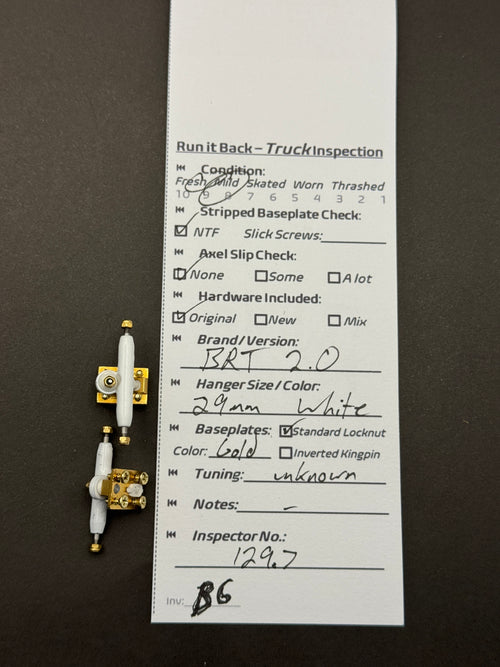 Run it Back – Truck Inspection
Condition:
Fresh Mild Skated Worn Thrashed
10 9 8 7 6 5 4 3 2 1
Stripped Baseplate Check:
NTF Slick Screws:
Axel Slip Check:
None Some A lot
Hardware Included:
Original New Mix
Brand/Version:
BRT 2.0
Hanger Size/Color:
29mm White
Baseplates: Standard Locknut
Color: Gold Inverted Kingpin
Tuning: unknown
Notes: –
Inspector No.:
129.7
Inv: B6